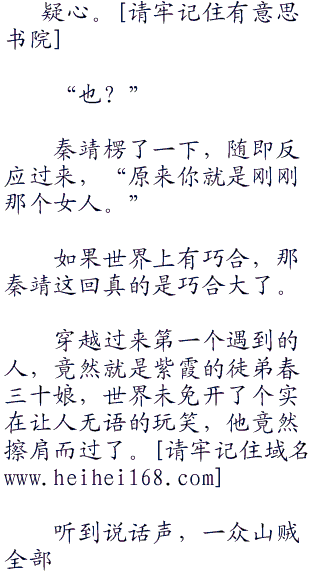 疑心。[请牢记住有意思
书院]
“也？”
秦靖楞了一下，随即反
应过来，“原来你就是刚刚
那个女人。”
如果世界上有巧合，那
秦靖这回真的是巧合大了。
穿越过来第一个遇到的
人，竟然就是紫霞的徒弟春
三十娘，世界未免开了个实
在让人无语的玩笑，他竟然
擦肩而过了。[请牢记住域名
www.heihei168.com]
听到说话声，一众山贼
全部